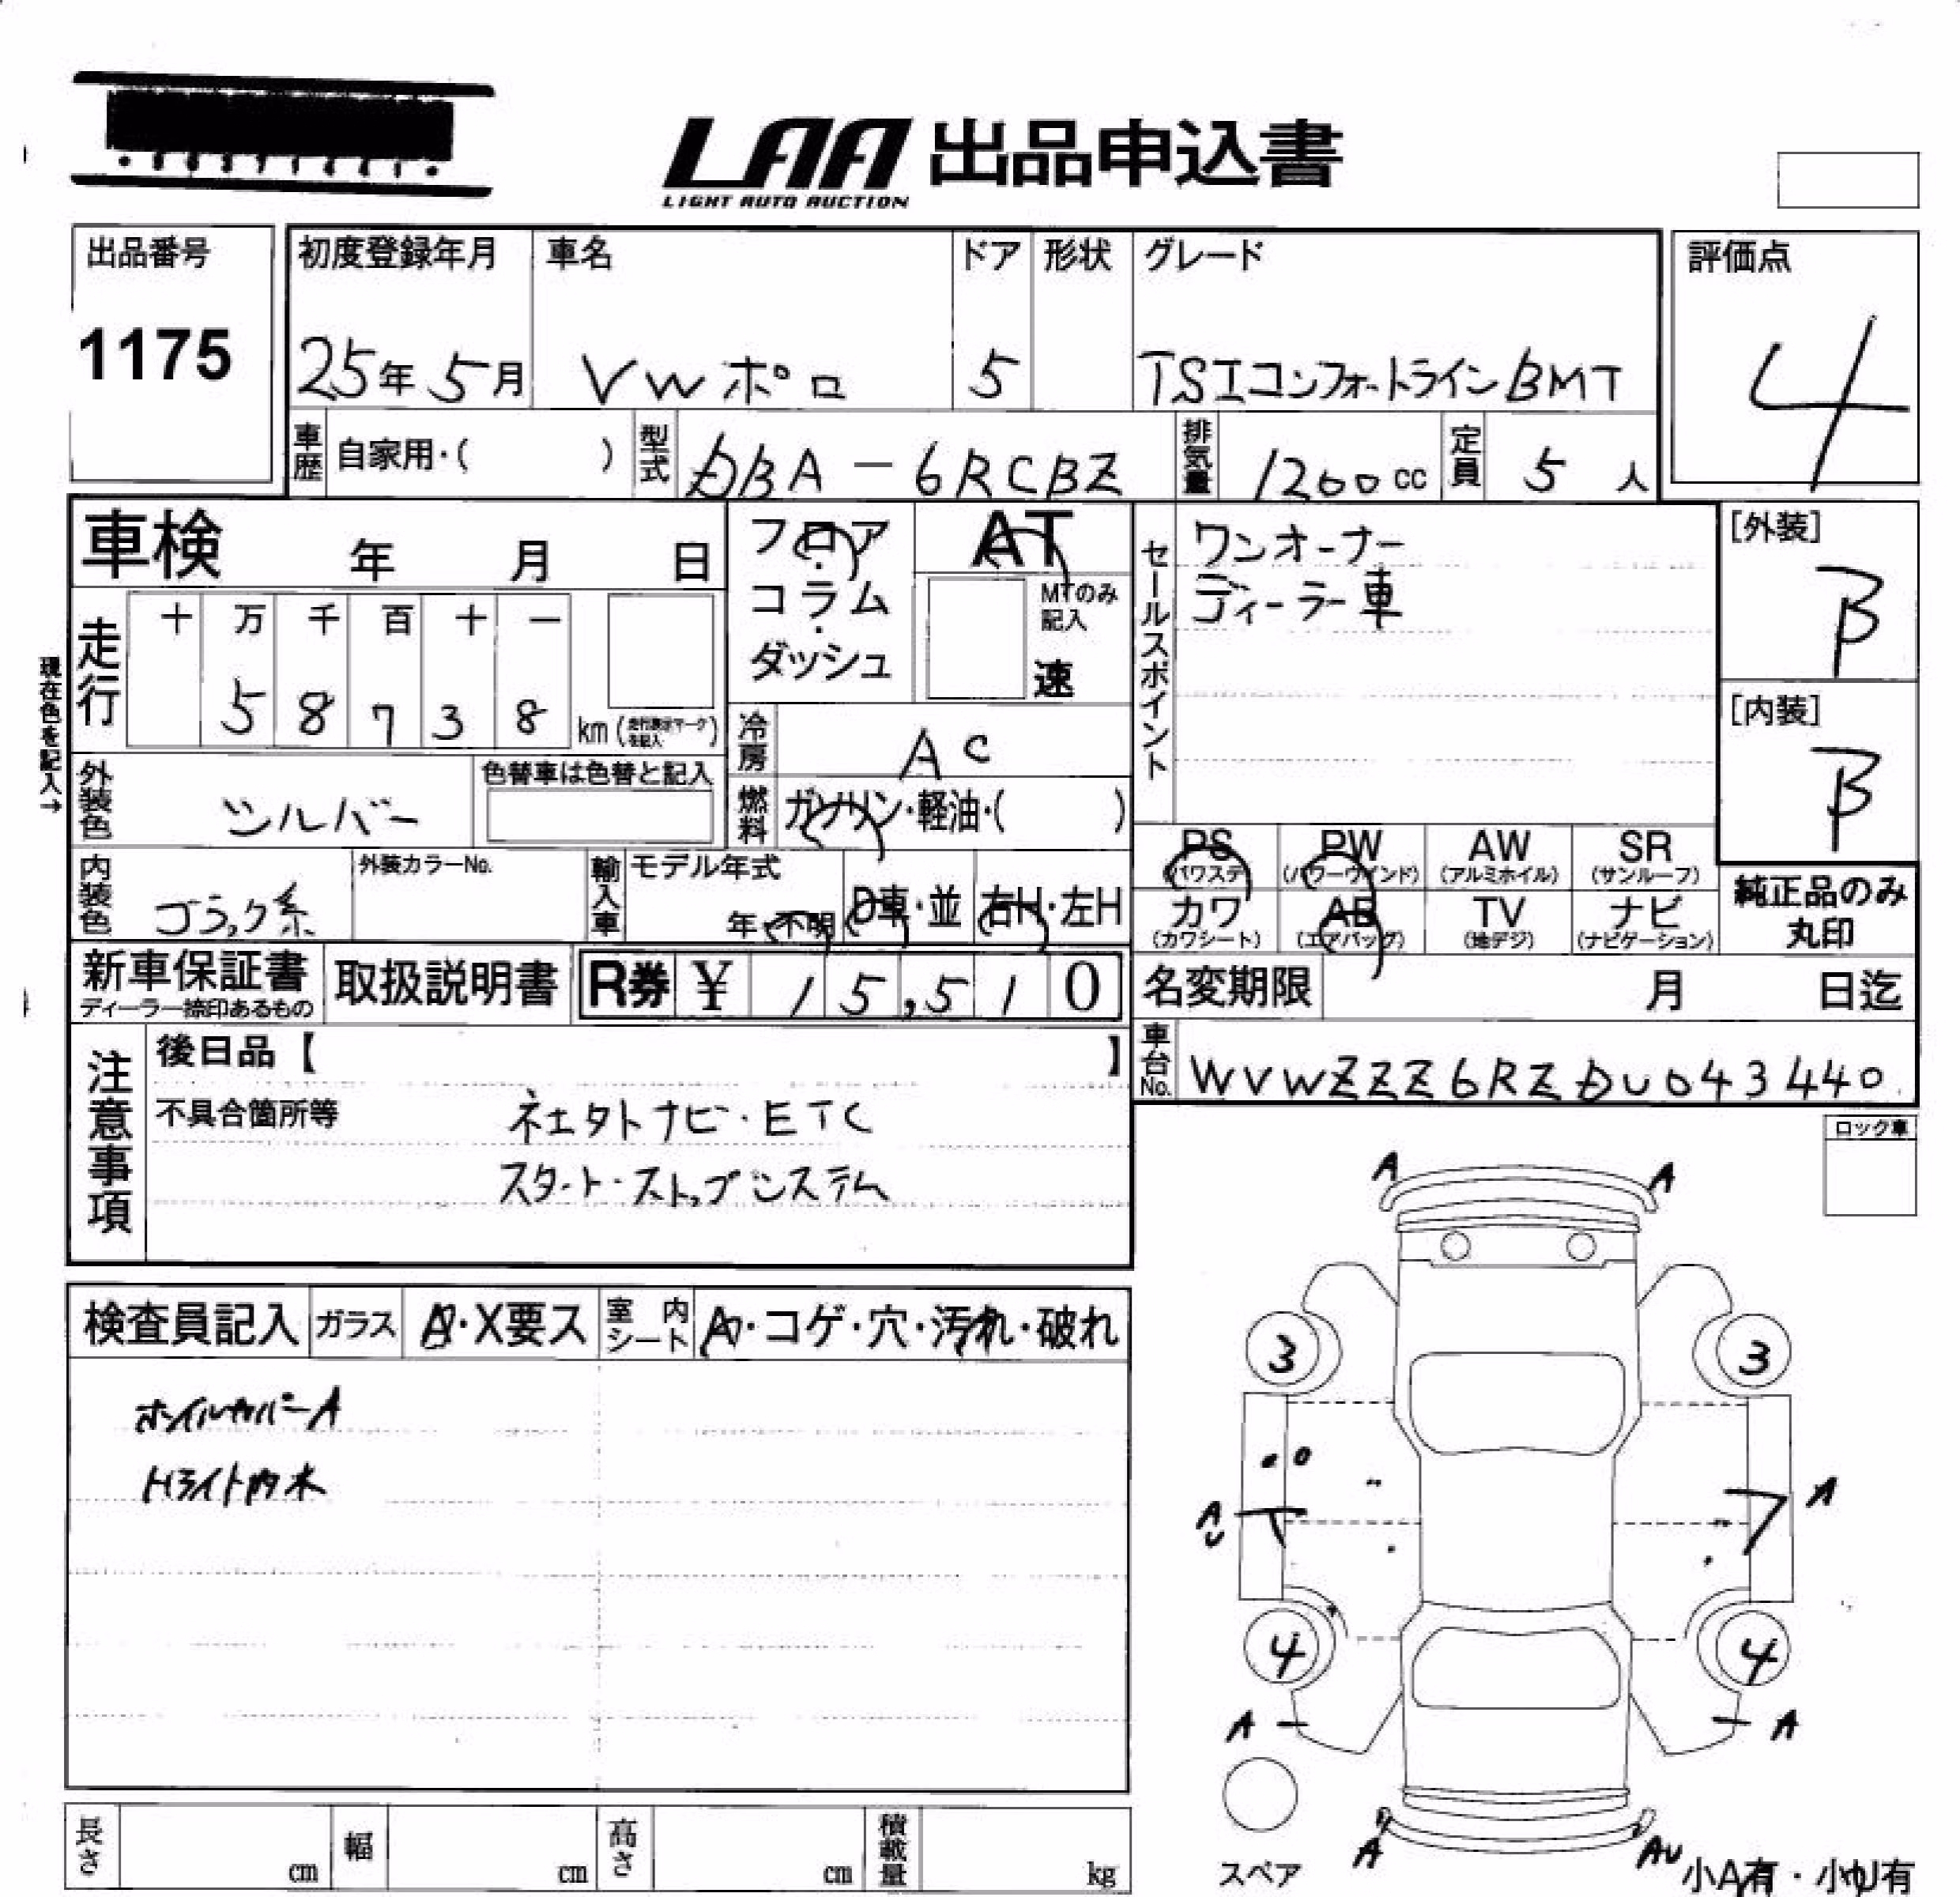 LAA 出品申込書
LIGHT AUTO AUCTION
出品番号
1175
初度登録年月
25年 5月
車名
VWポロ
ドア
5
形状
グレード
TSIコンフォートラインBMT
評価点
4
車歴 自家用・( )
型式 DBA-6RCBZ
排気量 1200cc
定員 5人
車検 年 月 日
フロア・コラム・ダッシュ
AT
MTのみ記入
速
セールスポイント
ワンオーナー
ディーラー車
[外装]
B
[内装]
B
現在色を記入→
走行
十 万 千 百 十 一
5 8 7 3 8 km (走行表示マークを記入)
冷房 AC
外装色 シルバー
色替車は色替と記入
燃料 ガソリン・軽油・( )
内装色 ブラック系
外装カラーNo.
輸入車
モデル年式
年・不明
D車・並
右H・左H
PS (パワステ)
PW (パワーウインド)
AW (アルミホイル)
SR (サンルーフ)
カワ (カワシート)
AB (エアバッグ)
TV (地デジ)
ナビ (ナビゲーション)
純正品のみ
丸印
新車保証書
ディーラー捺印あるもの
取扱説明書
R券 ¥ 15,510
名変期限 月 日迄
車台No. WVWZZZ6RZDU043440
注意事項
後日品【 】
不具合箇所等
ネエタトナビ・ETC
スタート・ストップシステム
ロック車
検査員記入
ガラス A・X要ス
室内シート A・コゲ・穴・汚れ・破れ
ホイルカバーA
Hライト内水
A A
3 3
AU A
4 4
A A
A AU
スペア
小A有・小U有
長さ cm
幅 cm
高さ cm
積載量 kg